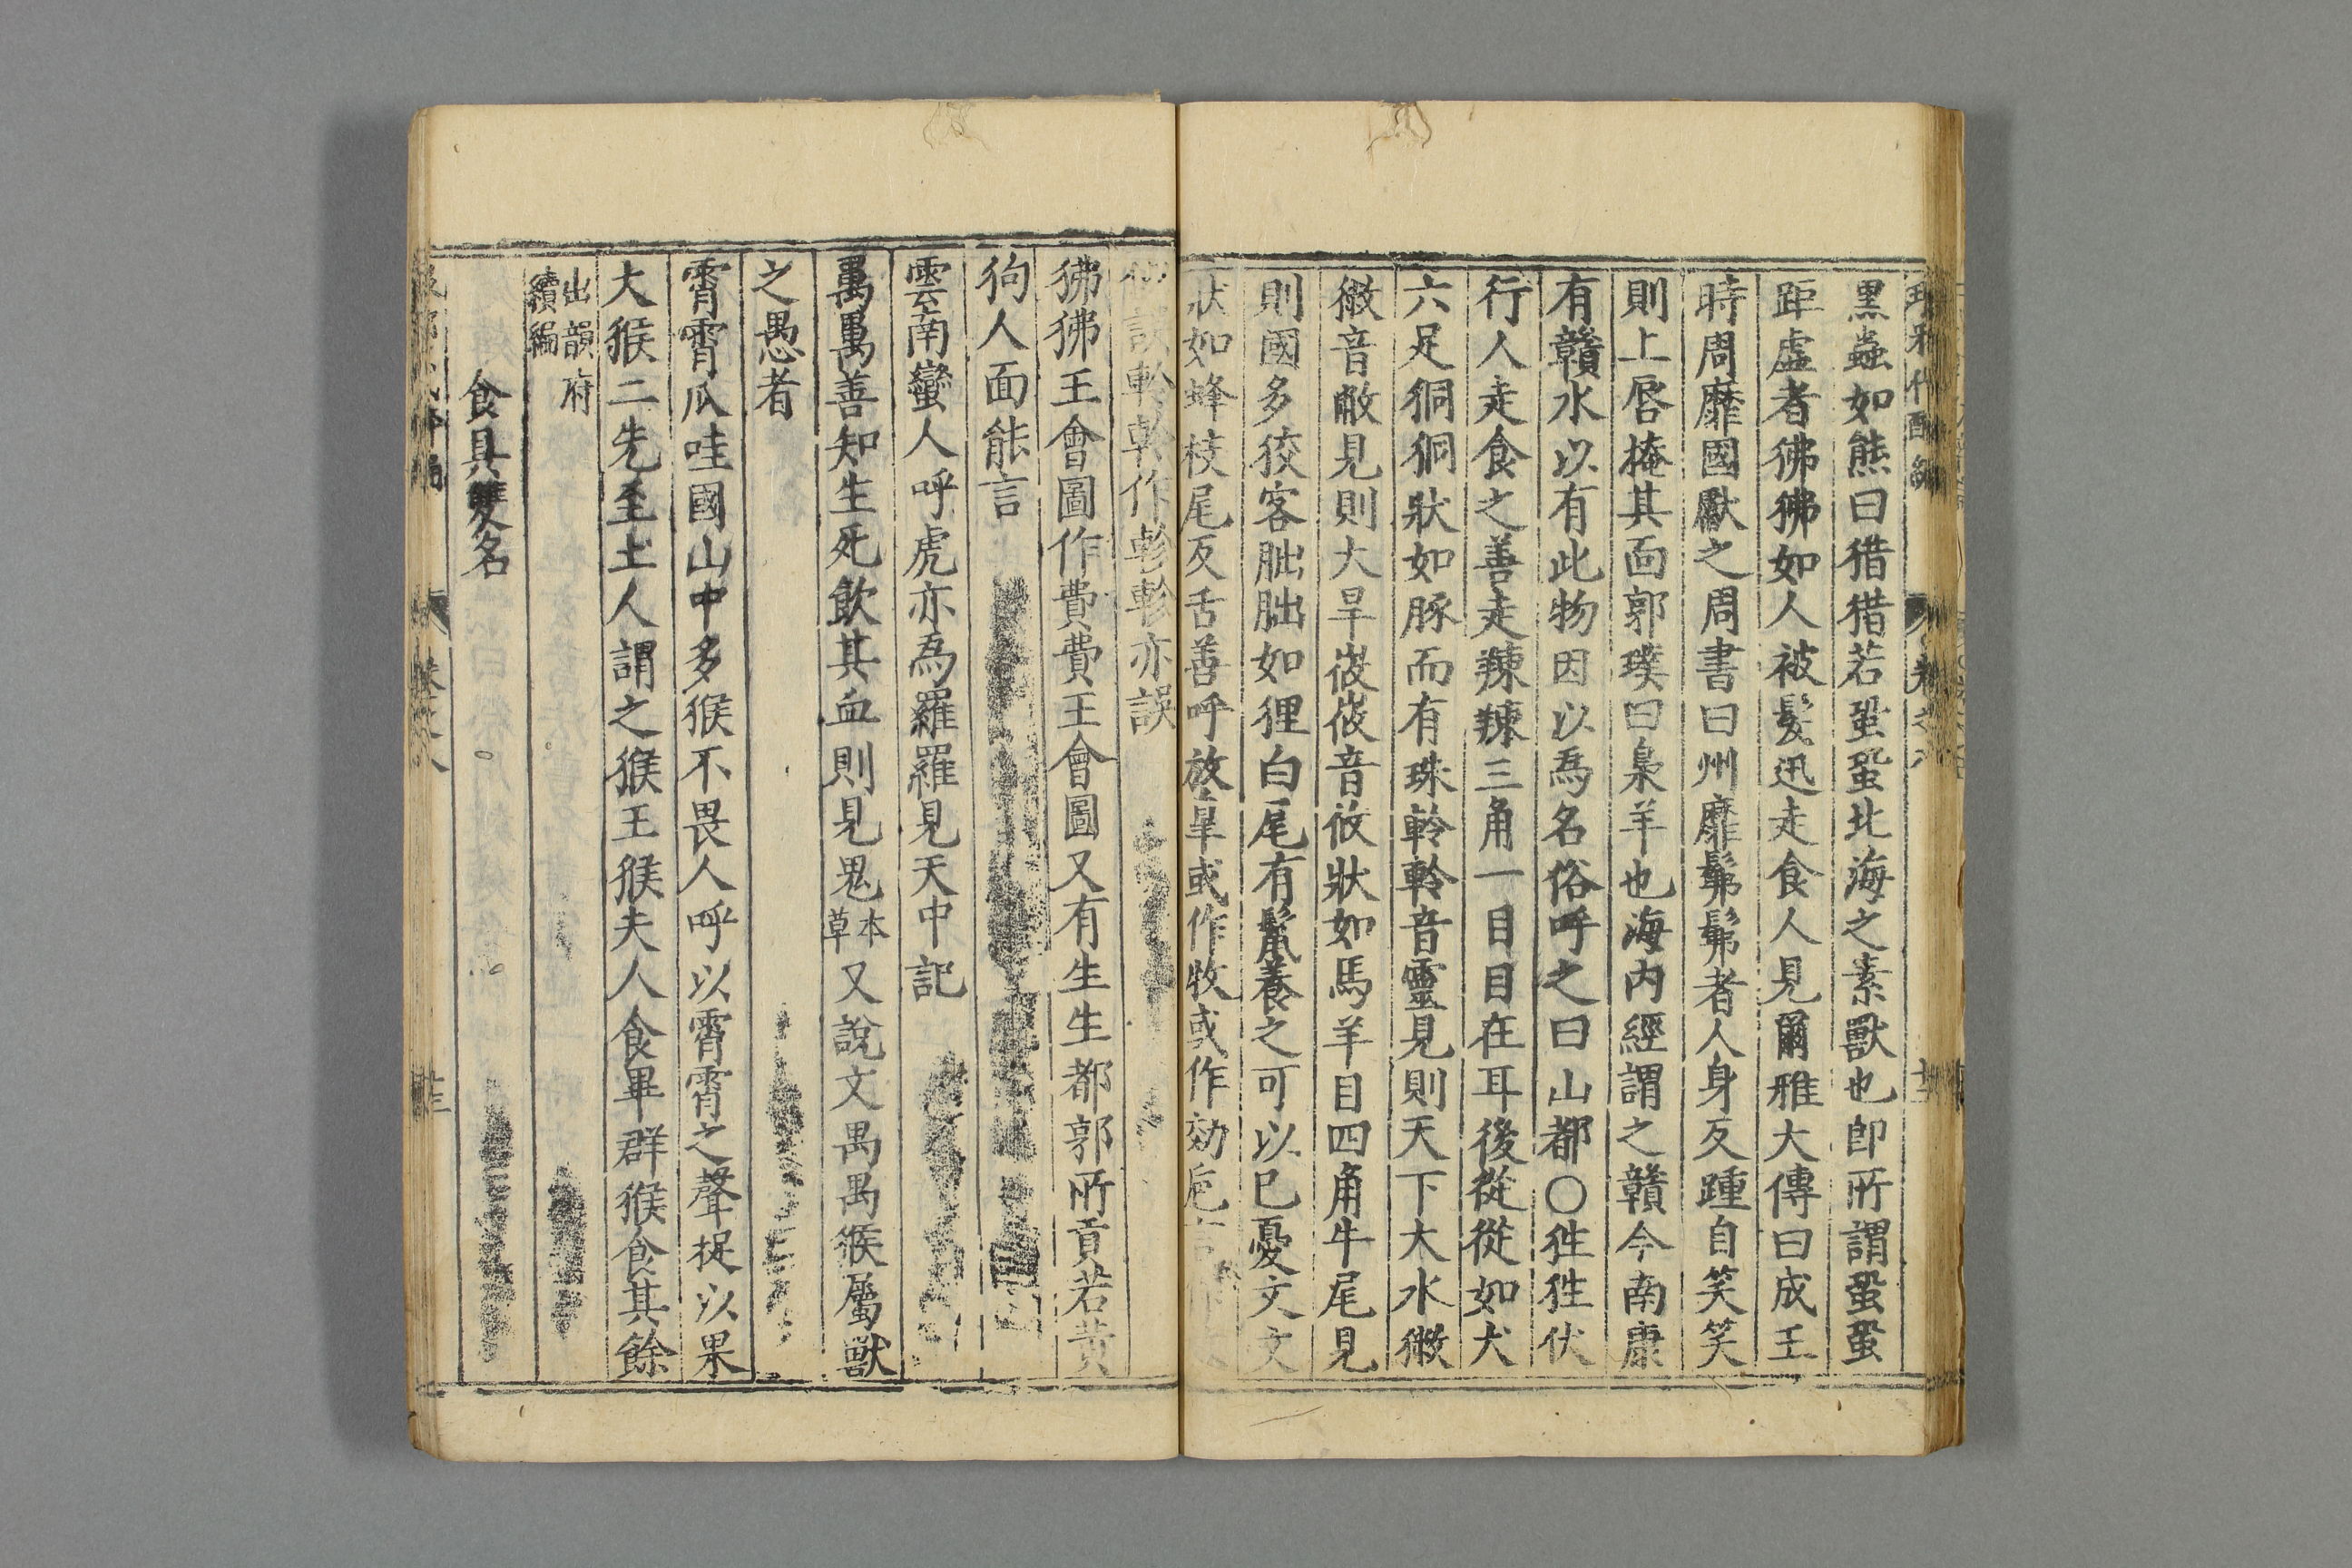 黑蟲如熊曰猎猎若蛩蛩北海之素獸也即所謂蛩蛩
距虛者狒狒如人被髮迅走食人見爾雅大傳曰成王
時周靡國獻之周書曰州靡髴髴者人身反踵自笑笑
則上唇掩其面郭璞曰梟羊也海內經謂之贛今南康
有贛水以有此物因以爲名俗呼之曰山都○狌狌伏
行人走食之善走𢔨𢔨三角一目目在耳後從從如犬
六足狪狪狀如豚而有珠軨軨音靈見則天下大水㺑
音敝見則大旱峳峳音攸狀如馬羊目四角牛尾見
則國多狡客朏朏如狸白尾有鬣養之可以已憂文文
狀如蜂枝尾反舌善呼放臯或作牧或作効
軨軨作軫軫亦誤
狒狒王會圖作費費王會圖又有生生都郭所貢若黃
狗人面能言
雲南蠻人呼虎亦爲羅羅見天中記
萬萬善知生死飲其血則見鬼本草又說文禺禺猴屬獸
之愚者
霄霄瓜哇國山中多猴不畏人呼以霄霄之聲捉以果
大猴二先至土人謂之猴王猴夫人食畢群猴食其餘
出韻府續編
食具雙名
卷之八